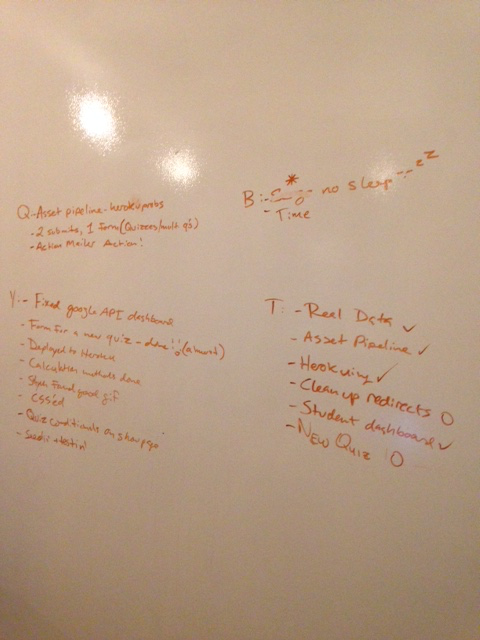 Q-Asset pipeline-heroku probs
- 2 submits, 1 form (Quizzes/mult q's)
- Action Mailer Action!
B: - no sleep -- zzZ
- Time
Y: - Fixed google API dashboard
- Form for a new quiz - done!! (almost)
- Deployed to Heroku
- Calculation methods done
- found good gif
- CSS'ed
- Quiz conditionals on show page
- testin'
T: - Reel Data ✓
- Asset Pipeline ✓
- Herokuing ✓
- Clean up redirects O
- Student dashboard ✓
- New Quiz O